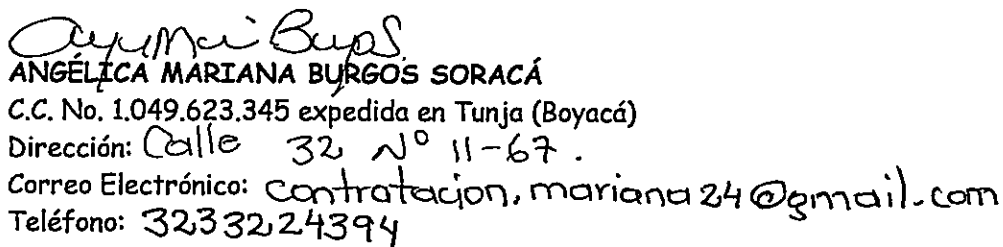 ANGÉLICA MARIANA BURGOS SORACÁ
C.C. No. 1.049.623.345 expedida en Tunja (Boyacá)
Dirección: Calle 32 N° 11-67.
Correo Electrónico: contratacion.mariana24@gmail.com
Teléfono: 3233224394